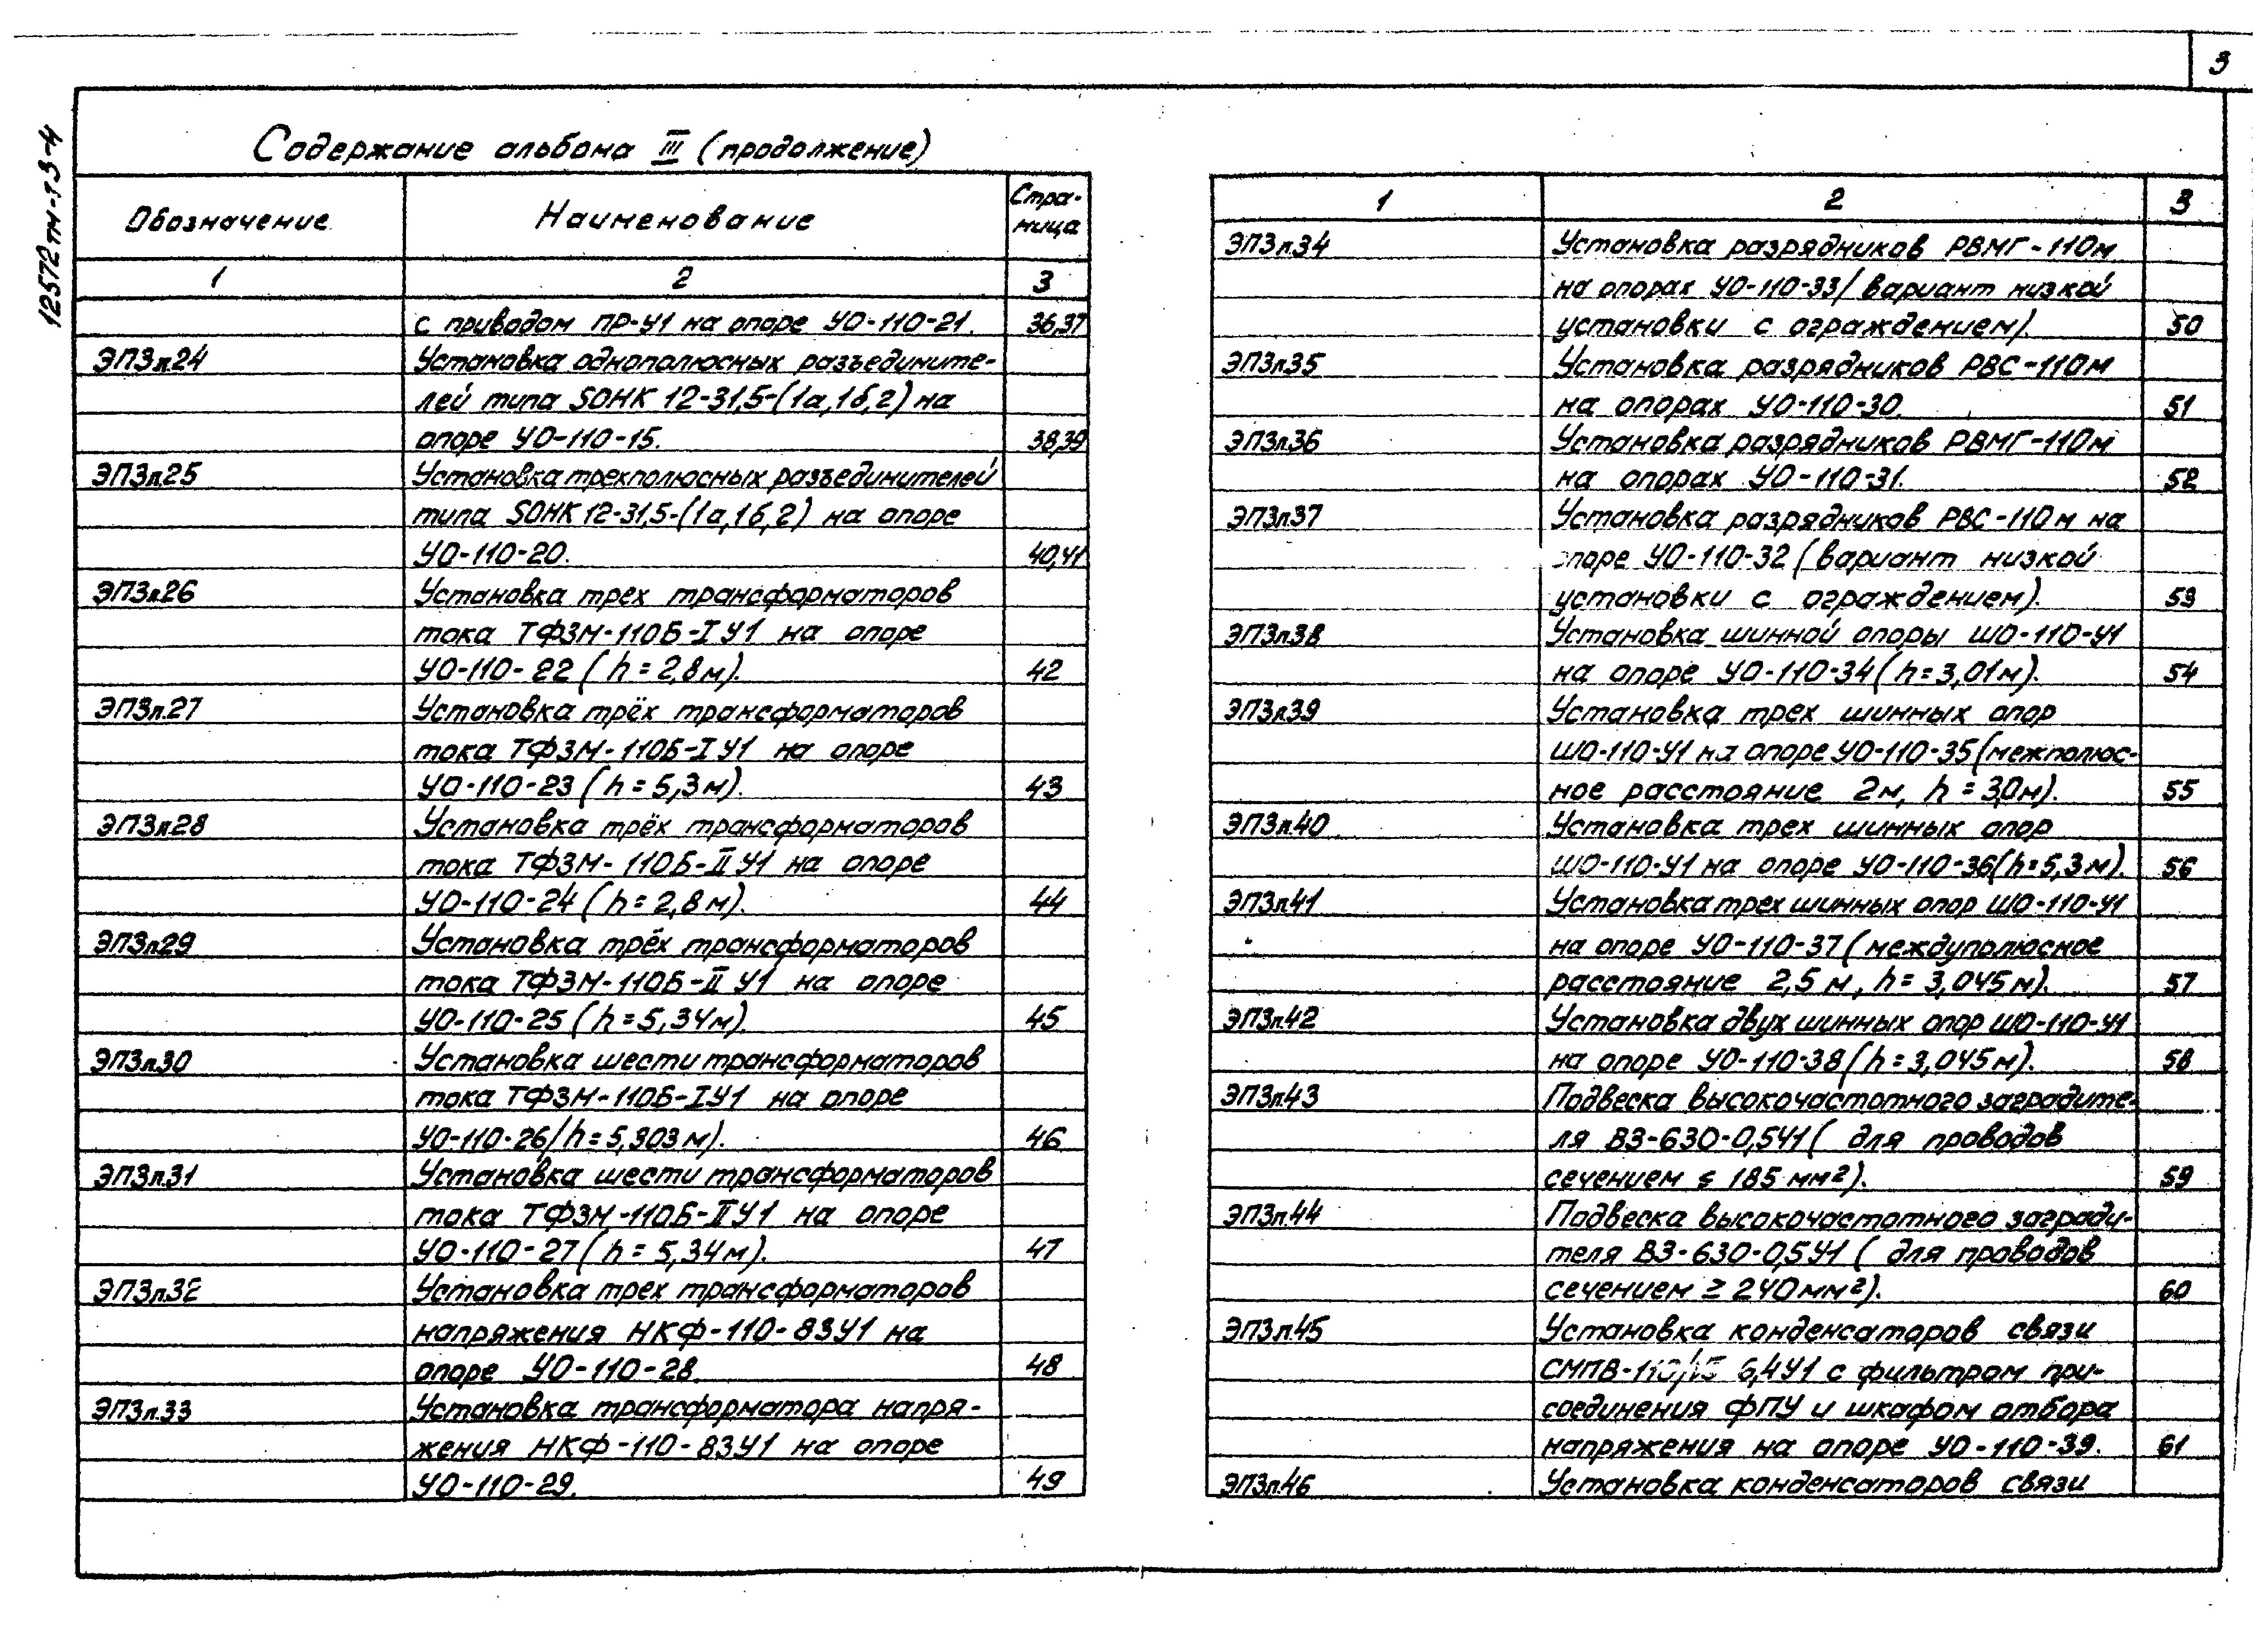 3
12572тм-т3-4
Содержание альбома III (продолжение)
Обозначение Наименование Стра-
ница
1 2 3
с приводом ПР-У1 на опоре УО-110-21. 36,37
ЭП3л.24 Установка однополюсных разъедините-
лей типа SOHK 12-31,5-(1а,1б,2) на
опоре УО-110-15. 38,39
ЭП3л.25 Установка трехполюсных разъединителей
типа SOHK 12-31,5-(1а,1б,2) на опоре
УО-110-20. 40,41
ЭП3л.26 Установка трех трансформаторов
тока ТФЗМ-110Б-I У1 на опоре
УО-110-22 (h=2,8м). 42
ЭП3л.27 Установка трёх трансформаторов
тока ТФЗМ-110Б-I У1 на опоре
УО-110-23 (h=5,3м). 43
ЭП3л.28 Установка трёх трансформаторов
тока ТФЗМ-110Б-II У1 на опоре
УО-110-24 (h=2,8м). 44
ЭП3л.29 Установка трёх трансформаторов
тока ТФЗМ-110Б-II У1 на опоре
УО-110-25 (h=5,34м). 45
ЭП3л.30 Установка шести трансформаторов
тока ТФЗМ-110Б-I У1 на опоре
УО-110-26 (h=5,303м). 46
ЭП3л.31 Установка шести трансформаторов
тока ТФЗМ-110Б-II У1 на опоре
УО-110-27 (h=5,34м). 47
ЭП3л.32 Установка трех трансформаторов
напряжения НКФ-110-83У1 на
опоре УО-110-28. 48
ЭП3л.33 Установка трансформатора напря-
жения НКФ-110-83У1 на опоре
УО-110-29. 49
1 2 3
ЭП3л.34 Установка разрядников РВМГ-110м
на опорах УО-110-33 (вариант низкой
установки с ограждением). 50
ЭП3л.35 Установка разрядников РВС-110м
на опорах УО-110-30. 51
ЭП3л.36 Установка разрядников РВМГ-110м
на опорах УО-110-31. 52
ЭП3л.37 Установка разрядников РВС-110м на
опоре УО-110-32 (вариант низкой
установки с ограждением). 53
ЭП3л.38 Установка шинной опоры ШО-110-У1
на опоре УО-110-34 (h=3,01м). 54
ЭП3л.39 Установка трех шинных опор
ШО-110-У1 на опоре УО-110-35 (межполюс-
ное расстояние 2м, h=3,0м). 55
ЭП3л.40 Установка трех шинных опор
ШО-110-У1 на опоре УО-110-36 (h=5,3м). 56
ЭП3л.41 Установка трех шинных опор ШО-110-У1
на опоре УО-110-37 (междуполюсное
расстояние 2,5м, h=3,045м). 57
ЭП3л.42 Установка двух шинных опор ШО-110-У1
на опоре УО-110-38 (h=3,045м). 58
ЭП3л.43 Подвеска высокочастотного заградите-
ля ВЗ-630-0,5У1 (для проводов
сечением ≤ 185 мм²). 59
ЭП3л.44 Подвеска высокочастотного загради-
теля ВЗ-630-0,5У1 (для проводов
сечением ≥ 240мм²). 60
ЭП3л.45 Установка конденсаторов связи
6,4У1 с фильтром при-
соединения ФПУ и шкафом отбора
напряжения на опоре УО-110-39. 61
ЭП3л.46 Установка конденсаторов связи